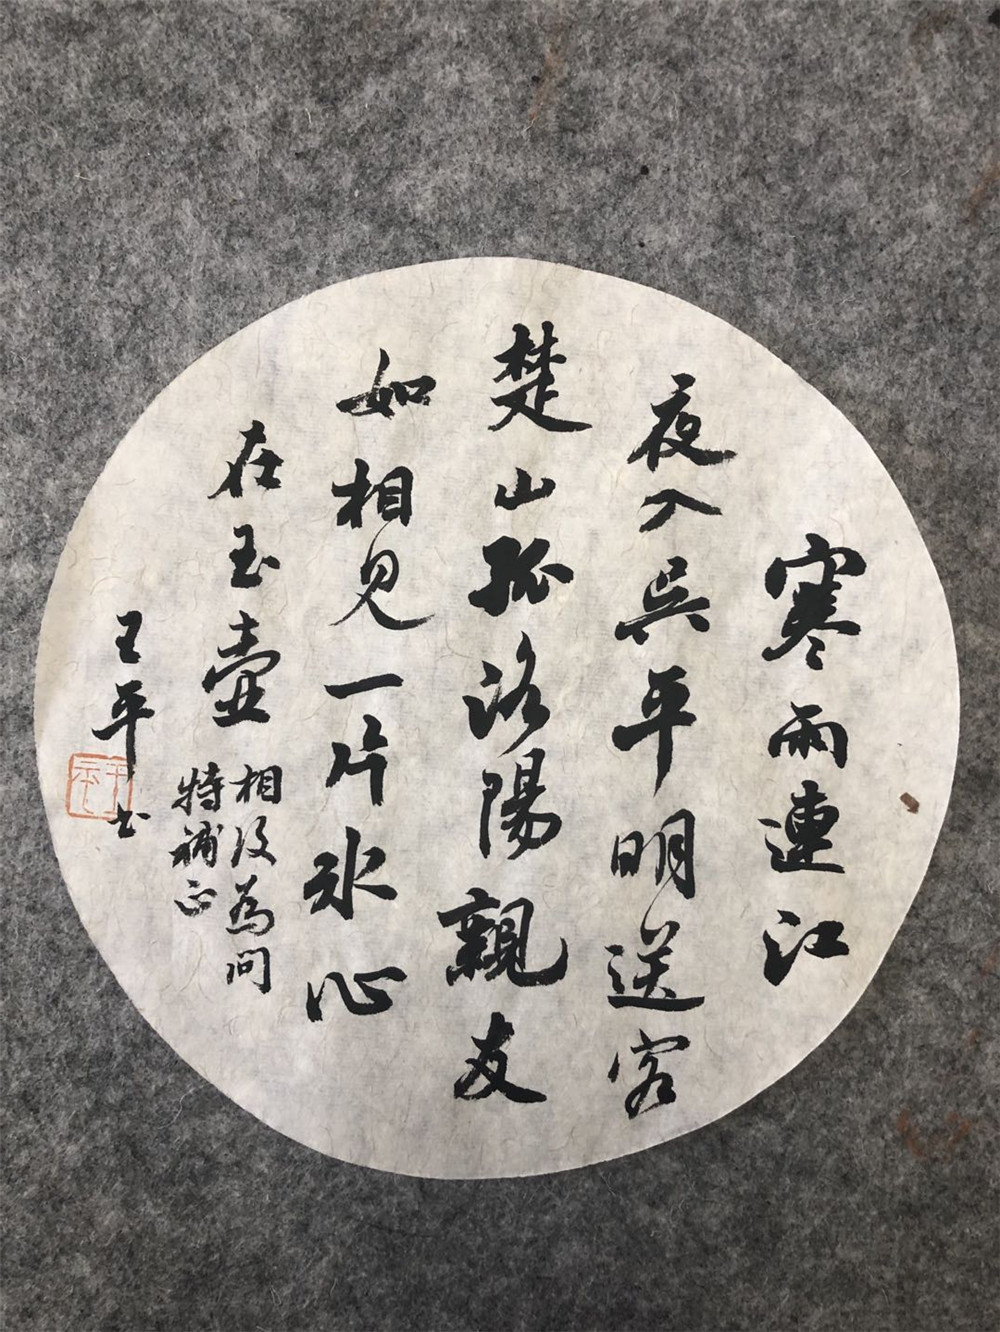 寒雨連江
夜入吳平明送客
楚山孤洛陽親友
如相見一片冰心
在玉壺
相為问
特補正
王平书